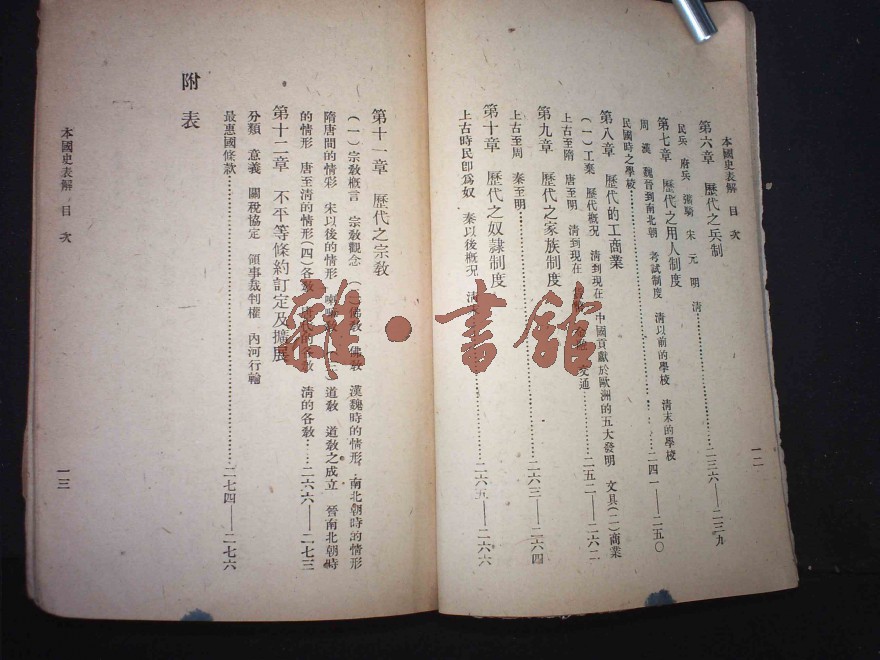 本國史表解 目次
第六章 歷代之兵制
民兵 府兵 彍騎 宋 元 明 清……二三六——二三九
第七章 歷代之用人制度
周 漢 魏晉到南北朝 考試制度 清以前的學校 清末的學校
民國時之學校……二四一——二五〇
第八章 歷代的工商業
(一)工業 歷代概況 清到現在 中國貢獻於歐洲的五大發明 文具(二)商業
上古至隋 唐至明 清到現在 交通……二五二——二六二
第九章 歷代之家族制度
上古至周 秦至明……二六三——二六四
第十章 歷代之奴隸制度
上古時民卽爲奴 秦以後概況 清末……二六五——二六六
一二
第十一章 歷代之宗敎
(一)宗敎槪言 宗敎觀念 (二)佛敎 佛敎 漢魏時的情形 南北朝時的情形
隋唐間的情彩 宋以後的情形 喇嘛敎 (三)道敎 道敎之成立 晉南北朝時
的情形 唐至清的情形(四)各敎 唐代的各敎 清的各敎……二六六——二七三
第十二章 不平等條約訂定及擴展
分類 意義 關稅協定 領事裁判權 內河行輪
最惠國條款……二七四——二七六
附表
本國史表解 目次
一三
雜·書館